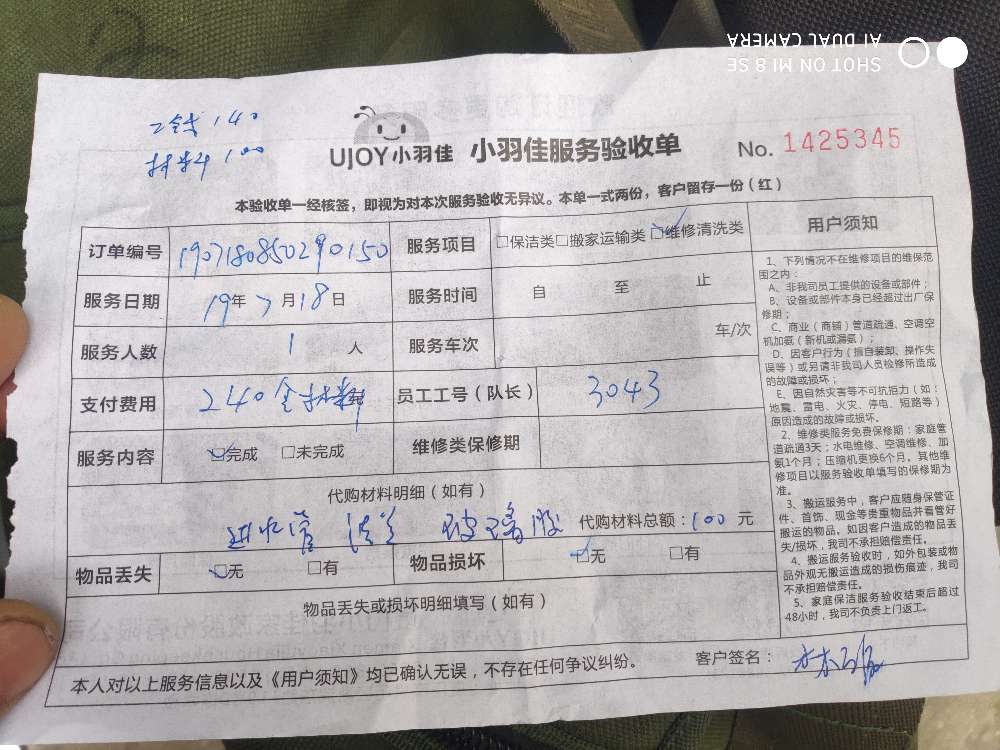 SHOT ON MI 8 SE
AI DUAL CAMERA
工钱140
材料100
UJOY小羽佳 小羽佳服务验收单 No. 1425345
本验收单一经核签，即视为对本次服务验收无异议。本单一式两份，客户留存一份（红）
订单编号 190718085029 0150 服务项目 □保洁类□搬家运输类☑维修清洗类
服务日期 19年7月18日 服务时间 自 至 止
服务人数 1 人 服务车次 车/次
支付费用 240含材料元 员工工号（队长） 3043
服务内容 ☑完成 □未完成 维修类保修期
代购材料明细（如有）
进水管 法兰 玻璃胶 代购材料总额：100 元
物品丢失 ☑无 □有 物品损坏 ☑无 □有
物品丢失或损坏明细填写（如有）
本人对以上服务信息以及《用户须知》均已确认无误，不存在任何争议纠纷。 客户签名：
用户须知
1、下列情况不在维修项目的维保范
围之内：
A、非我司员工提供的设备或部件；
B、设备或部件本身已经超过出厂保
修期；
C、商业（商铺）管道疏通、空调空
机加氨（新机或漏氨）；
D、因客户行为（擅自装卸、操作失
误等）或另请非我司人员检修所造成
的故障或损坏；
E、因自然灾害等不可抗拒力（如：
地震、雷电、火灾、停电、短路等）
原因造成的故障或损坏。
2、维修类服务免费保修期：家庭管
道疏通3天；水电维修、空调维修、加
氨1个月；压缩机更换6个月。其他维
修项目以服务验收单填写的保修期为
准。
3、搬运服务中，客户应随身保管证
件、首饰、现金等贵重物品并看管好
搬运的物品。如因客户造成的物品丢
失/损坏，我司不承担赔偿责任。
4、搬运服务验收时，如外包装或物
品外观无搬运造成的损伤痕迹，我司
不承担赔偿责任。
5、家庭保洁服务验收结束后超过
48小时，我司不负责上门返工。